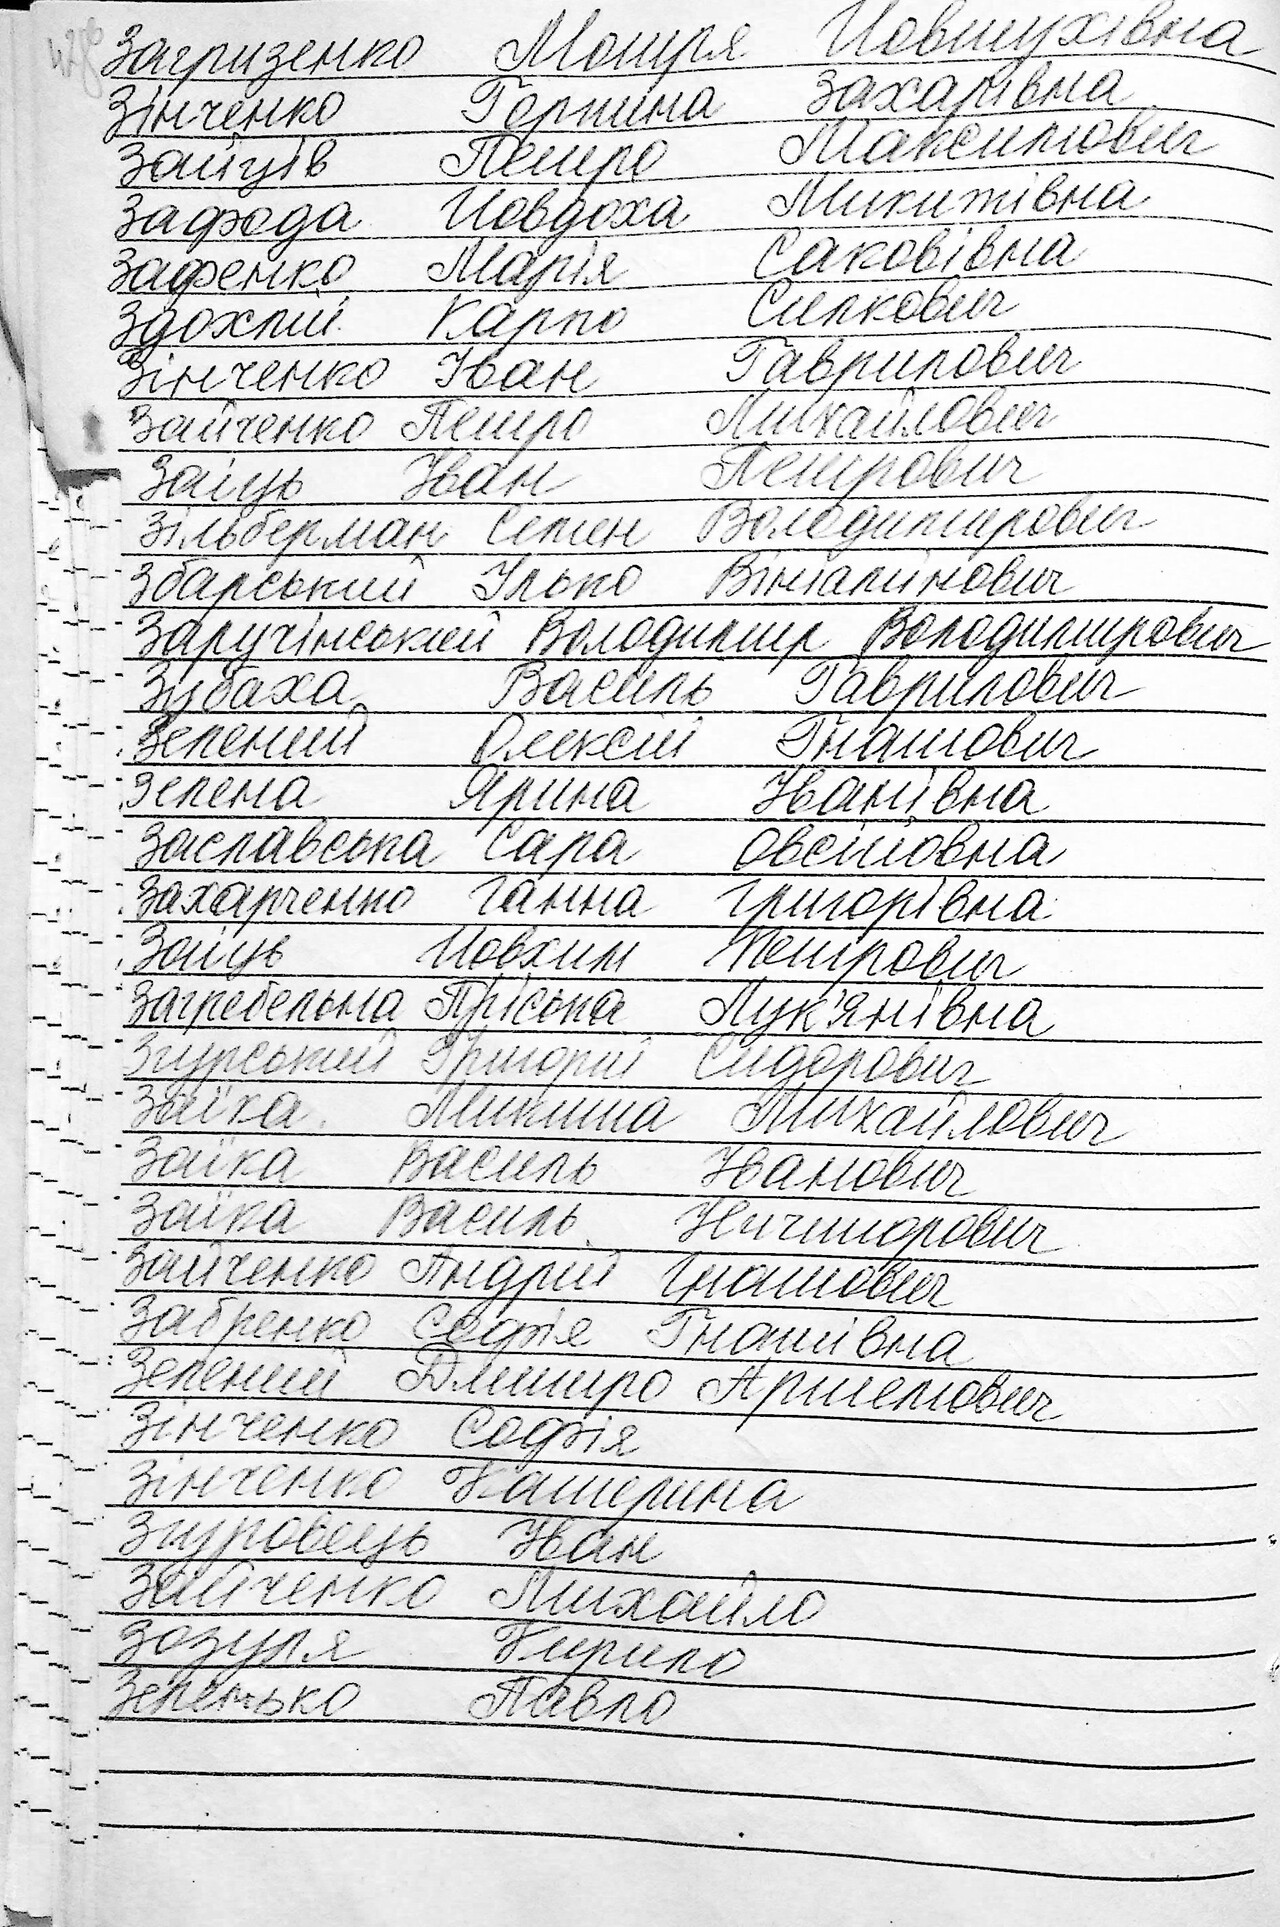 Загризенко Мотря Йовтухівна
Зінченко Горпина Захарівна
Зайців Петро Максимович
Зафода Йовдоха Микитівна
Зафенко Марія Саковівна
Здохлій Карпо Силкович
Зінченко Іван Гаврилович
Зайченко Петро Михайлович
Заіць Іван Петрович
Зільберман Семен Володимирович
Збарський Ілько
Заручінський Володимир Володимирович
Зубаха Василь Гаврилович
Зелений Олексій Гнатович
Зелена Ярина Іванівна
Заславська Сара Овсійовна
Захарченко Ганна Григорівна
Заіць Йовхим Петрович
Загребельна Пріська Лук'янівна
Згурський Григорій Сидорович
Заїка Микита Михайлович
Заїка Василь Іванович
Заїка Василь Ничипорович
Зайченко Андрій Гнатович
Забренко Софія Гнатівна
Зелений Дмитро Артемович
Зінченко Софія
Зінченко Катерина
Згуровець Іван
Зайченко Михайло
Зозуля Кирило
Зеленько Павло